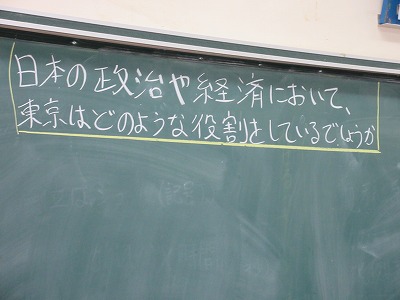 日本の政治や経済において、
東京はどのような役割をしているでしょうか